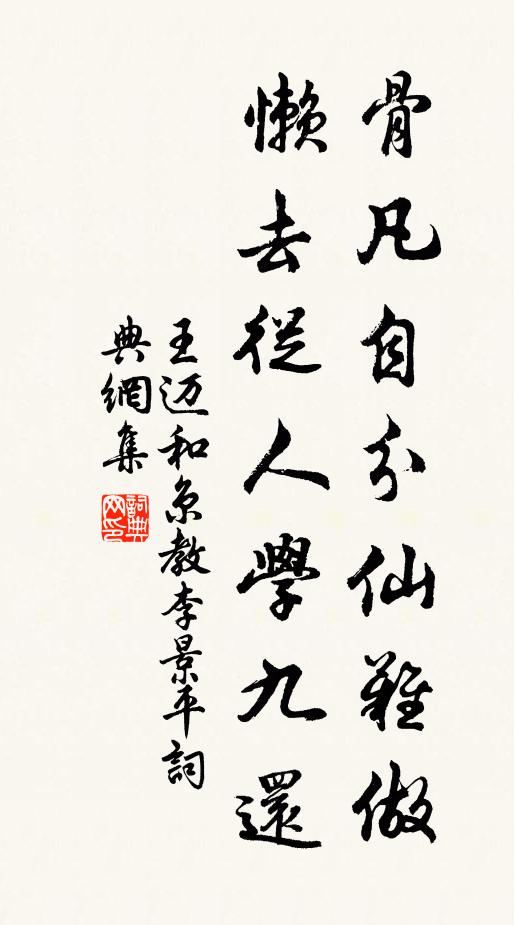 骨凡自分仙難做
懶去從人學九還
王迈和京教李景平詞
典網集
詞典
网印